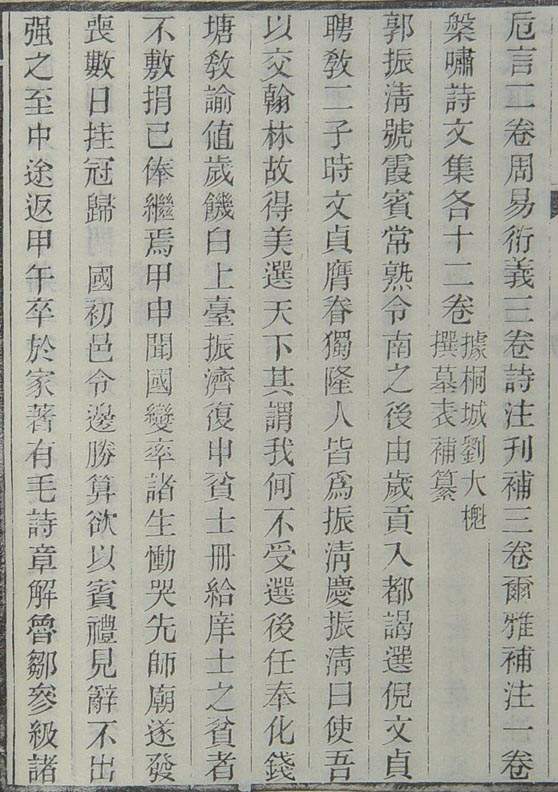 卮言二卷周易衍義三卷詩注刊補三卷爾雅補注一卷
槃嘯詩文集各十二卷據桐城劉大櫆
撰墓表補纂
郭振淸號霞賓常熟令南之後由歲貢入都謁選倪文貞
聘敎二子時文貞膺眷獨隆人皆爲振淸慶振淸曰使吾
以交翰林故得美選天下其謂我何不受選後任奉化錢
塘敎諭值歲饑白上臺振濟復申貧士冊給庠士之貧者
不敷捐己俸繼焉甲申聞國變率諸生慟哭先師廟遂發
喪數日挂冠歸　國初邑令邊勝算欲以賓禮見辭不出
强之至中途返甲午卒於家著有毛詩章解魯鄒參級諸